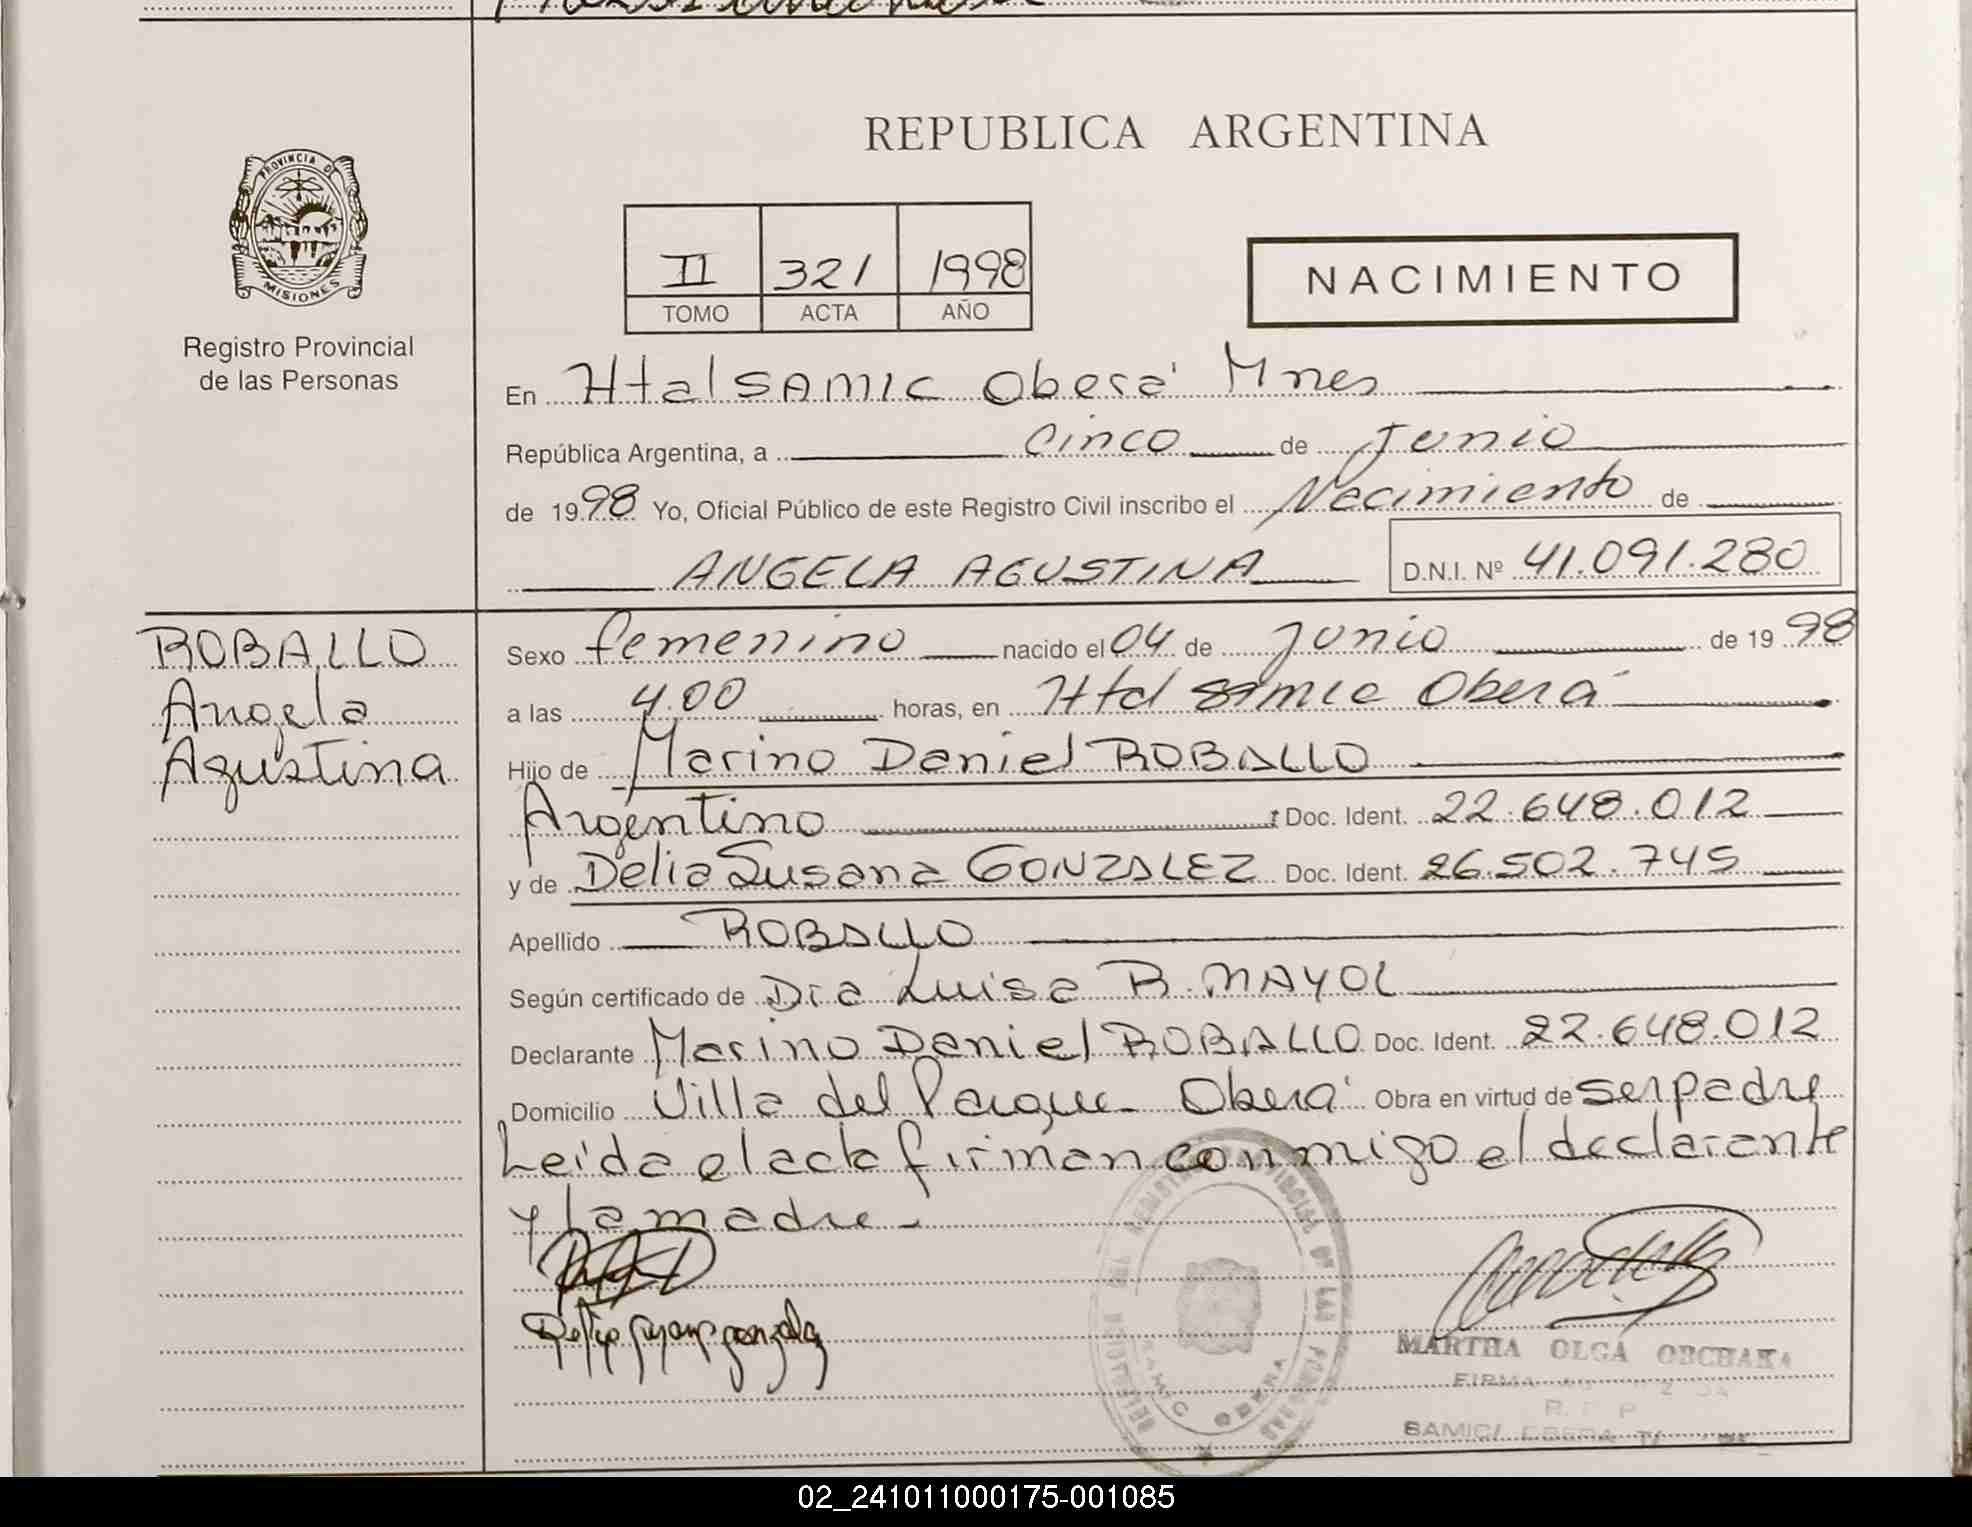 REPUBLICA ARGENTINA
PROVINCIA DE
MISIONES
Registro Provincial
de las Personas
II 321 1998
TOMO ACTA AÑO
NACIMIENTO
En Htal SAMIC Oberá Mnes
República Argentina, a cinco de Junio
de 1998 Yo, Oficial Público de este Registro Civil inscribo el Nacimiento de
ANGELA AGUSTINA D.N.I. Nº 41.091.280
ROBALLO
Angela
Agustina
Sexo femenino nacido el 04 de Junio de 1998
a las 4.00 horas, en Htal SAMIC Oberá
Hijo de Marino Daniel ROBALLO
Argentino Doc. Ident. 22.648.012
y de Delia Susana GONZALEZ Doc. Ident. 26.502.745
Apellido ROBALLO
Según certificado de Dra Luisa R. MAYOL
Declarante Marino Daniel ROBALLO Doc. Ident. 22.648.012
Domicilio Villa del Parque - Oberá Obra en virtud de ser padre
Leída el acta firman conmigo el declarante
y la madre -
MARTHA OLGA OBCHAKA
FIRMA
R. P
SAMIC/
02_241011000175-001085